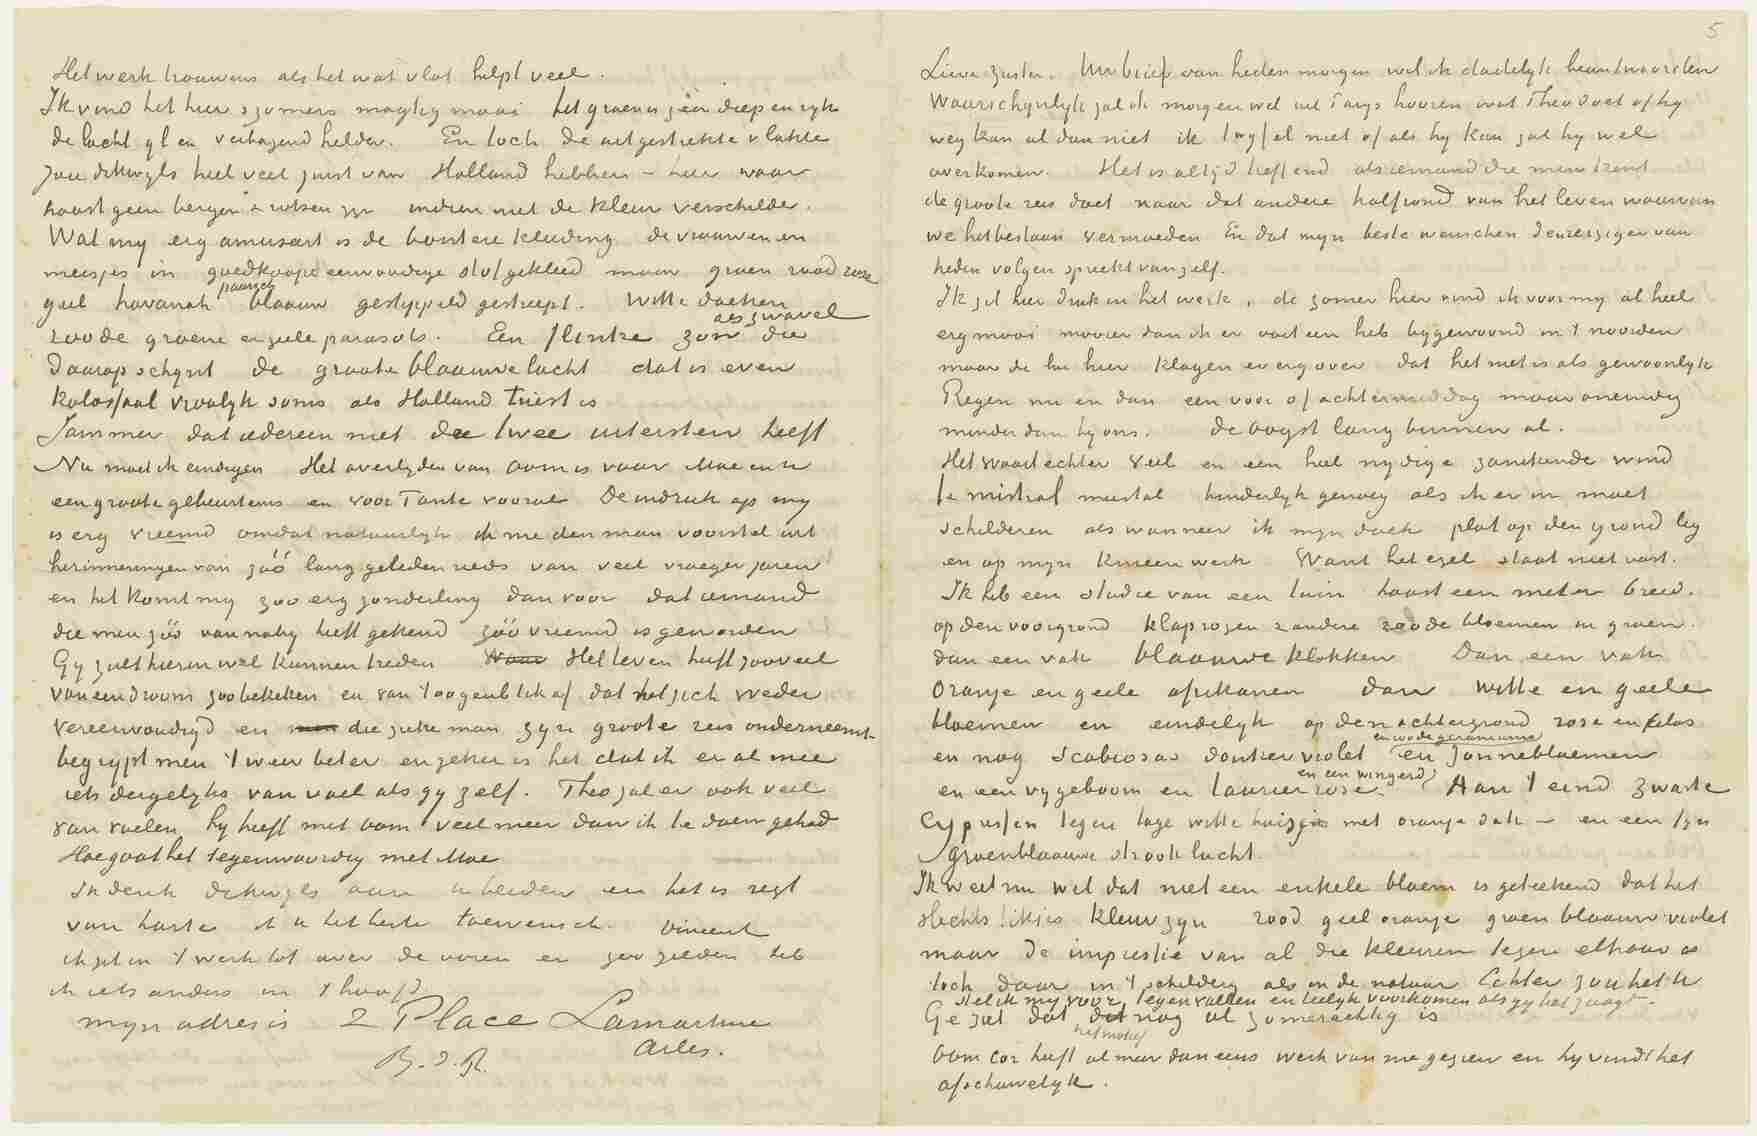 Het werk trouwens als het wat vlot helpt veel.
Ik vind het hier s zomers magtig mooi het groen is zeer diep en ryk
de lucht yl en verbazend helder. En toch de uitgestrekte vlakte
zou dikwyls heel veel juist van Holland hebben – hier waar
haast geen bergen & rotsen zyn indien niet de kleur verschilde.
Wat my erg amuseert is de bontere kleeding de vrouwen en
meisjes in goedkoope eenvoudige stof gekleed maar groen rood rose
geel havanah paarsch blaauw gestippeld gestreept. Witte doeken
roode groene en geele parasols. Een flinke zon als zwavel die
daarop schynt de groote blaauwe lucht dat is even
kolossaal vroolyk soms als Holland triest is
Jammer dat iedereen niet die twee uitersten heeft
Nu moet ik eindigen Het overlyden van Oom is voor Moe en u
een groote gebeurtenis en voor Tante vooral De indruk op my
is erg vreemd omdat natuurlyk ik me den man voorstel uit
herinneringen van zóó lang geleden reeds van veel vroeger jaren
en het komt my zoo erg zonderling dan voor dat iemand
die men zóó van naby heeft gekend zóó vreemd is geworden
Gy zult hierin wel kunnen treden Waar Het leven heeft zooveel
van een droom zoo bekeken en van 't oogenblik af dat het zich weder
vereenvoudigd en die zieke man zyn groote reis onderneemt
begrypt men 't weer beter en zeker is het dat ik er al mee
iets dergelyks van voel als gy zelf. Theo zal er ook veel
van voelen hy heeft met oom veel meer dan ik te doen gehad
Hoe gaat het tegenwoordig met Moe
Ik denk dikwyls aan u beiden en het is regt
van harte ik u het beste toewensch. Vincent
ik zit in 't werk tot over de ooren en zoo zelden heb
ik iets anders in 't hoofd
myn adres is 2 Place Lamartine
Arles.
B. d. R.
5
Lieve zuster. Uw brief van heden morgen wil ik dadelyk beantwoorden
Waarschynlyk zal ik morgen wel uit Parys hooren wat Theo doet of hy
weg kan al dan niet ik twyfel niet of als hy kan zal hy wel
overkomen. Het is altijd treffend als iemand die men kent
de groote reis doet naar dat andere halfrond van het leven waarvan
we het bestaan vermoeden En dat myn beste wenschen den reiziger van
heden volgen spreekt vanzelf.
Ik zit hier druk in het werk, de zomer hier vind ik voor my al heel
erg mooi mooier dan ik er ooit een heb bygewoond in 't noorden
maar de lui hier klagen er erg over dat het niet is als gewoonlyk
Regen nu en dan een voor of achtermiddag maar oneindig
minder dan by ons. de oogst lang binnen al.
Het waait echter veel en een heel nydige zanikende wind
le mistral meestal hinderlyk genoeg als ik er in moet
schilderen als wanneer ik myn doek plat op den grond leg
en op myn knieen werk Want het ezel staat niet vast.
Ik heb een studie van een tuin haast een meter breed.
op den voorgrond klaprozen & andere roode bloemen in groen.
dan een vak blaauwe klokken Dan een vak
Oranje en geele afrikanen dan witte en geele
bloemen en eindelyk op den achtergrond rose en lilas
en nog scabiosas donker violet en roode geraniums en zonnebloemen
en een vygeboom en laurier rose en een wingerd. Aan 't eind zwarte
Cypressen tegen lage witte huisjes met oranje dak – en een fyn
groenblaauwe strook lucht.
Ik weet nu wel dat niet een enkele bloem is geteekend dat het
slechts likjes kleur zyn rood geel oranje groen blaauw violet
maar de impressie van al die kleuren tegen elkaar is
toch daar in 't schildery als in de natuur Echter zou het u
stel ik my voor, tegenvallen en leelyk voorkomen als gy het zaagt.
Ge ziet dat het motief nog al zomerachtig is
Oom Cor heeft al meer dan eens werk van me gezien en hy vindt het
afschuwelyk.